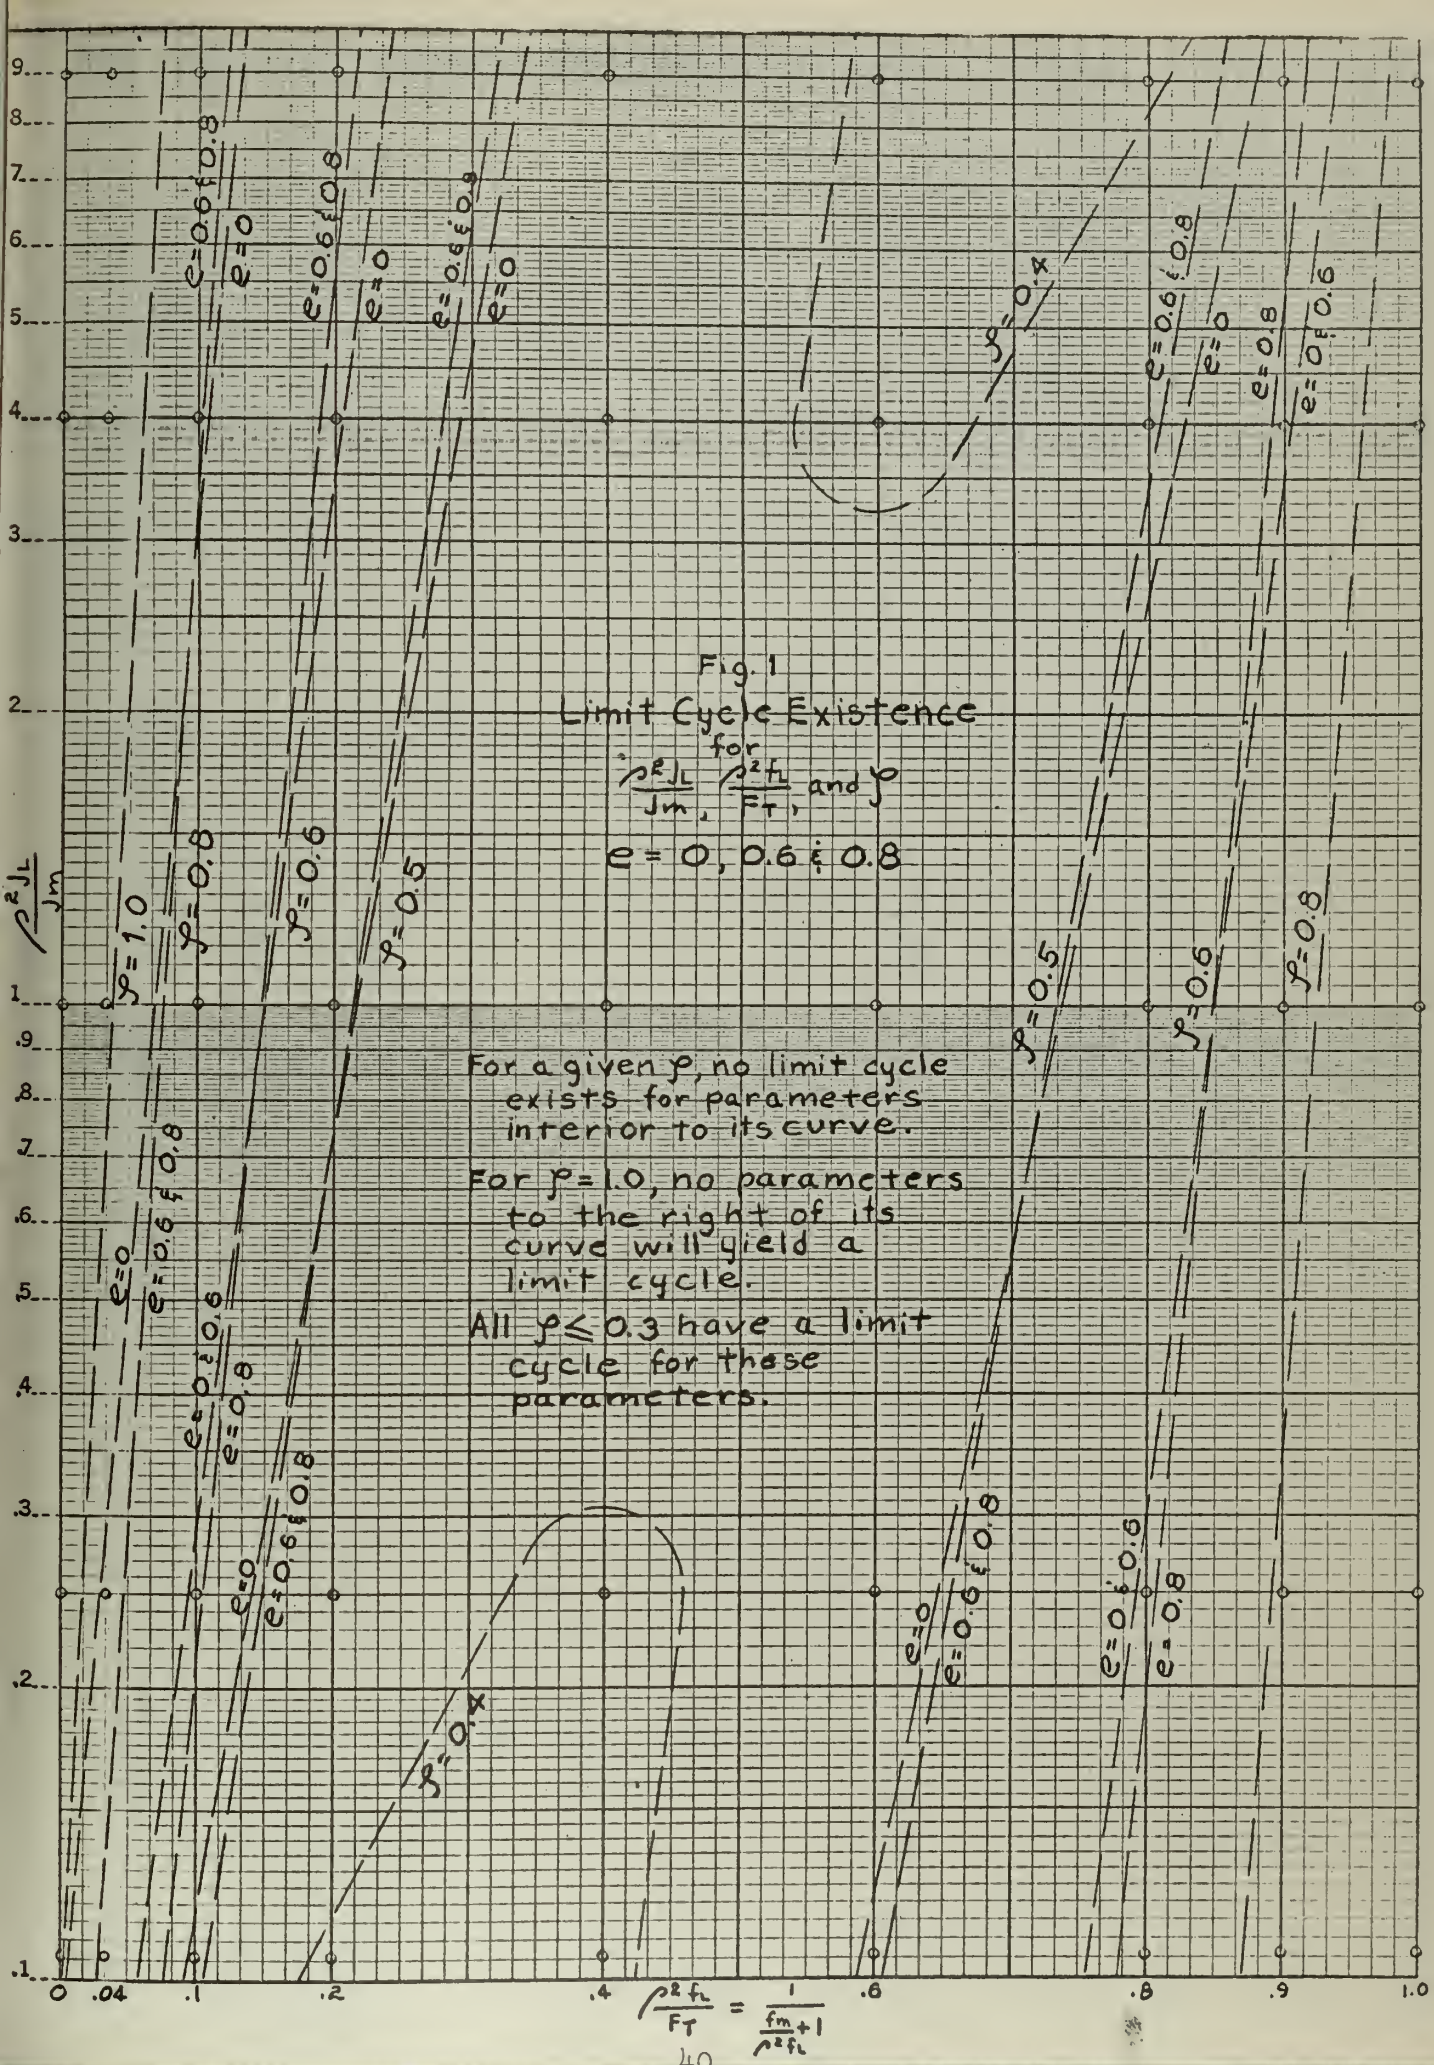 9
8
7
6
5
4
3
2
1
.9
.8
.7
.6
.5
.4
.3
.2
.1
ρ²J_L / J_m
e=0.6 & 0.8
e=0
e=0.6 & 0.8
e=0
e=0.6 & 0.8
e=0
ζ=0.4
e=0.6 & 0.8
e=0
e=0.8
e=0 & 0.6
Fig. 1
Limit Cycle Existence
for
ρ²J_L / J_m, ρ²f_L / F_T, and ζ
e = 0, 0.6 & 0.8
ζ=1.0
ζ=0.8
ζ=0.6
ζ=0.5
ζ=0.5
ζ=0.6
ζ=0.8
For a given ζ, no limit cycle
exists for parameters
interior to its curve.
For ζ=1.0, no parameters
to the right of its
curve will yield a
limit cycle.
All ζ ≤ 0.3 have a limit
cycle for these
parameters.
e=0
e=0.6 & 0.8
e=0 & 0.6
e=0.8
e=0
e=0.6 & 0.8
ζ=0.4
e=0
e=0.6 & 0.8
e=0 & 0.6
e=0.8
0 .04 .1 .2 .4 .6 .8 .9 1.0
ρ²f_L / F_T = 1 / (f_m / ρ²f_L + 1)
40